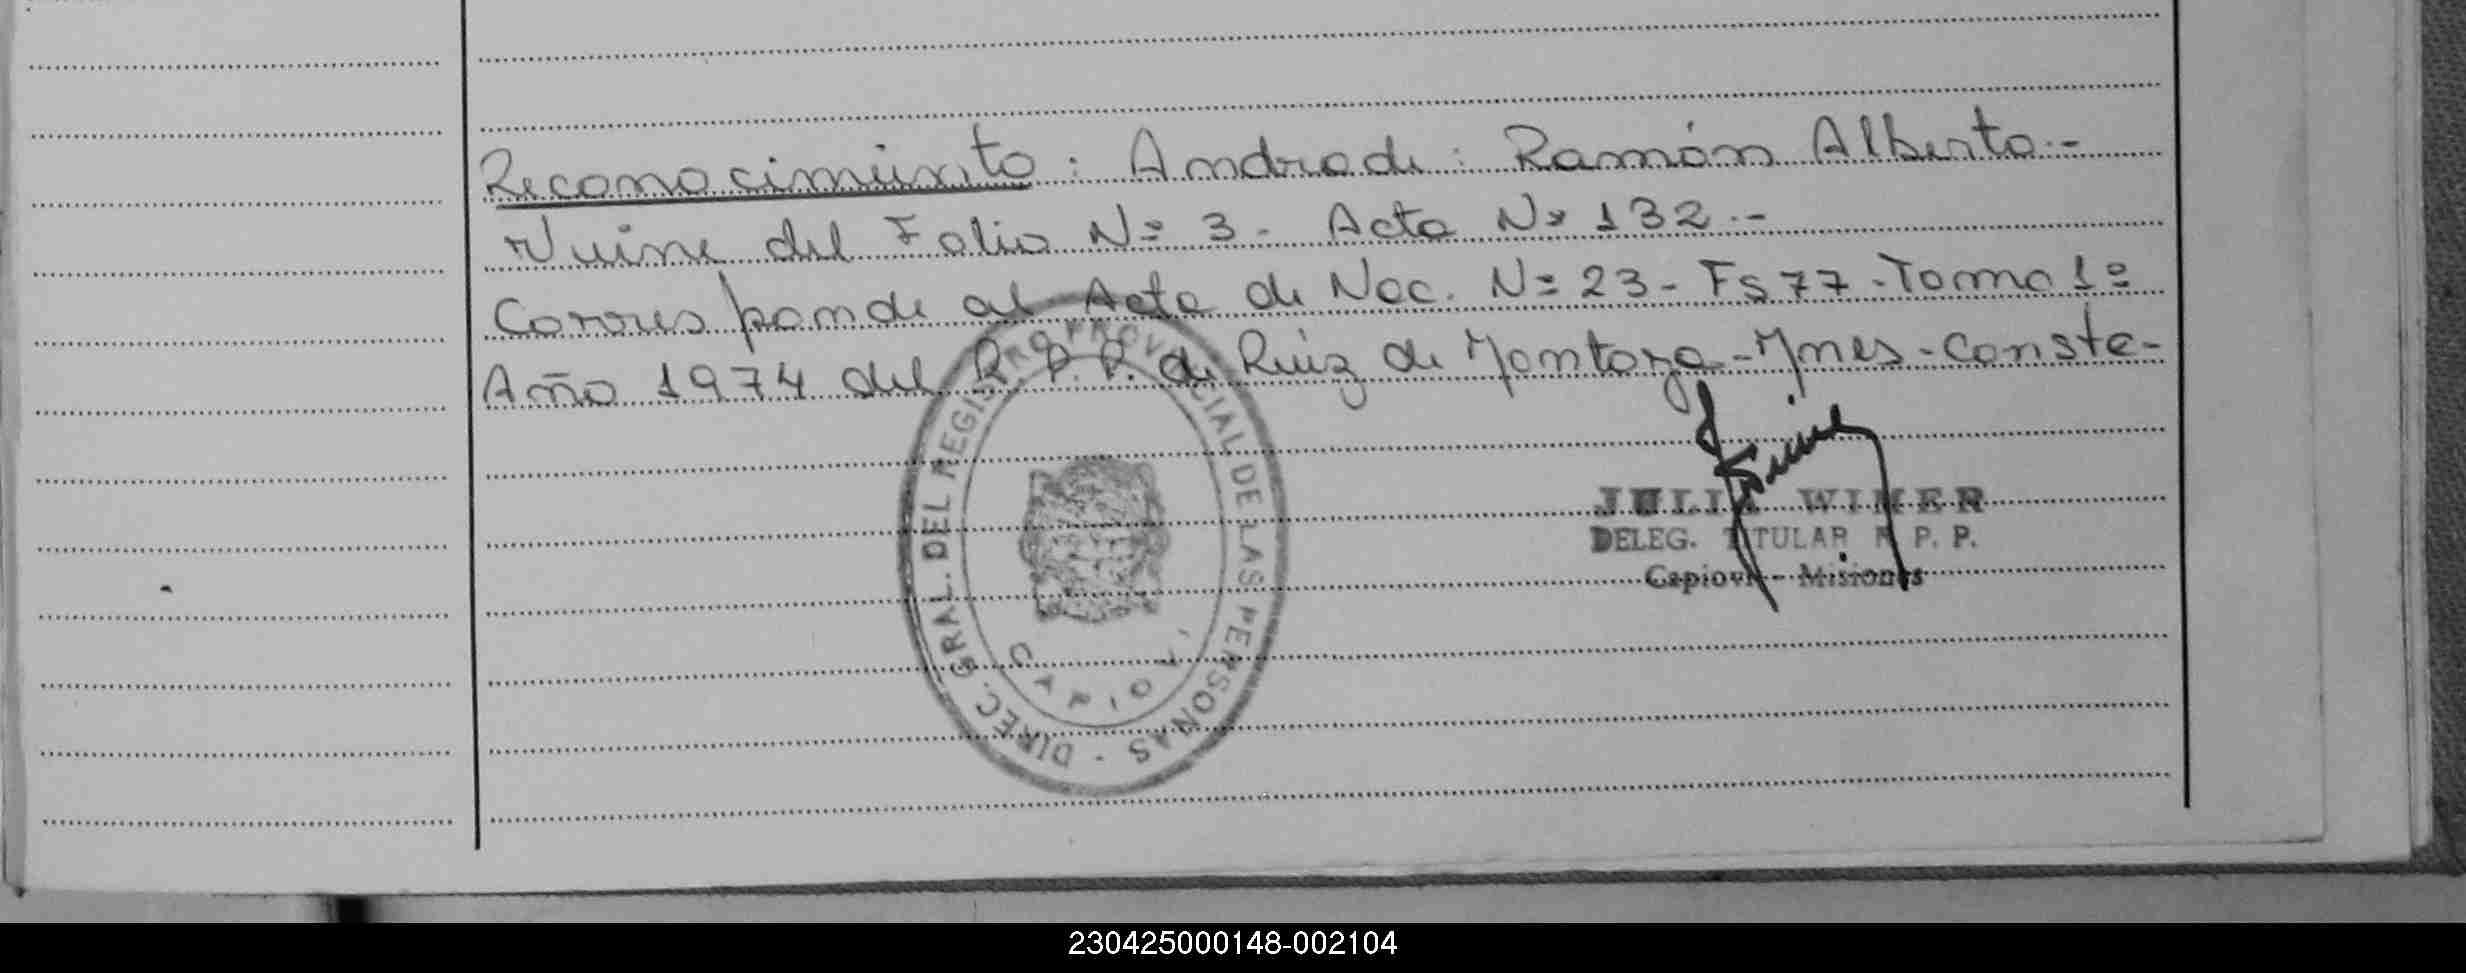 Reconocimiento: Andrade: Ramón Alberto.-
Viene del Folio Nº 3. Acta Nº 132.-
Corresponde al Acta de Nac. Nº 23- Fs 77-Tomo 1º
Año 1974 del R. P. P. de Ruiz de Montoya-Mnes-Conste-
DIREC. GRAL. DEL REGISTRO PROVINCIAL DE LAS PERSONAS -
CAPIOVI
JULIA WIMER
DELEG. TITULAR R. P. P.
Capiovi - Misiones
230425000148-002104